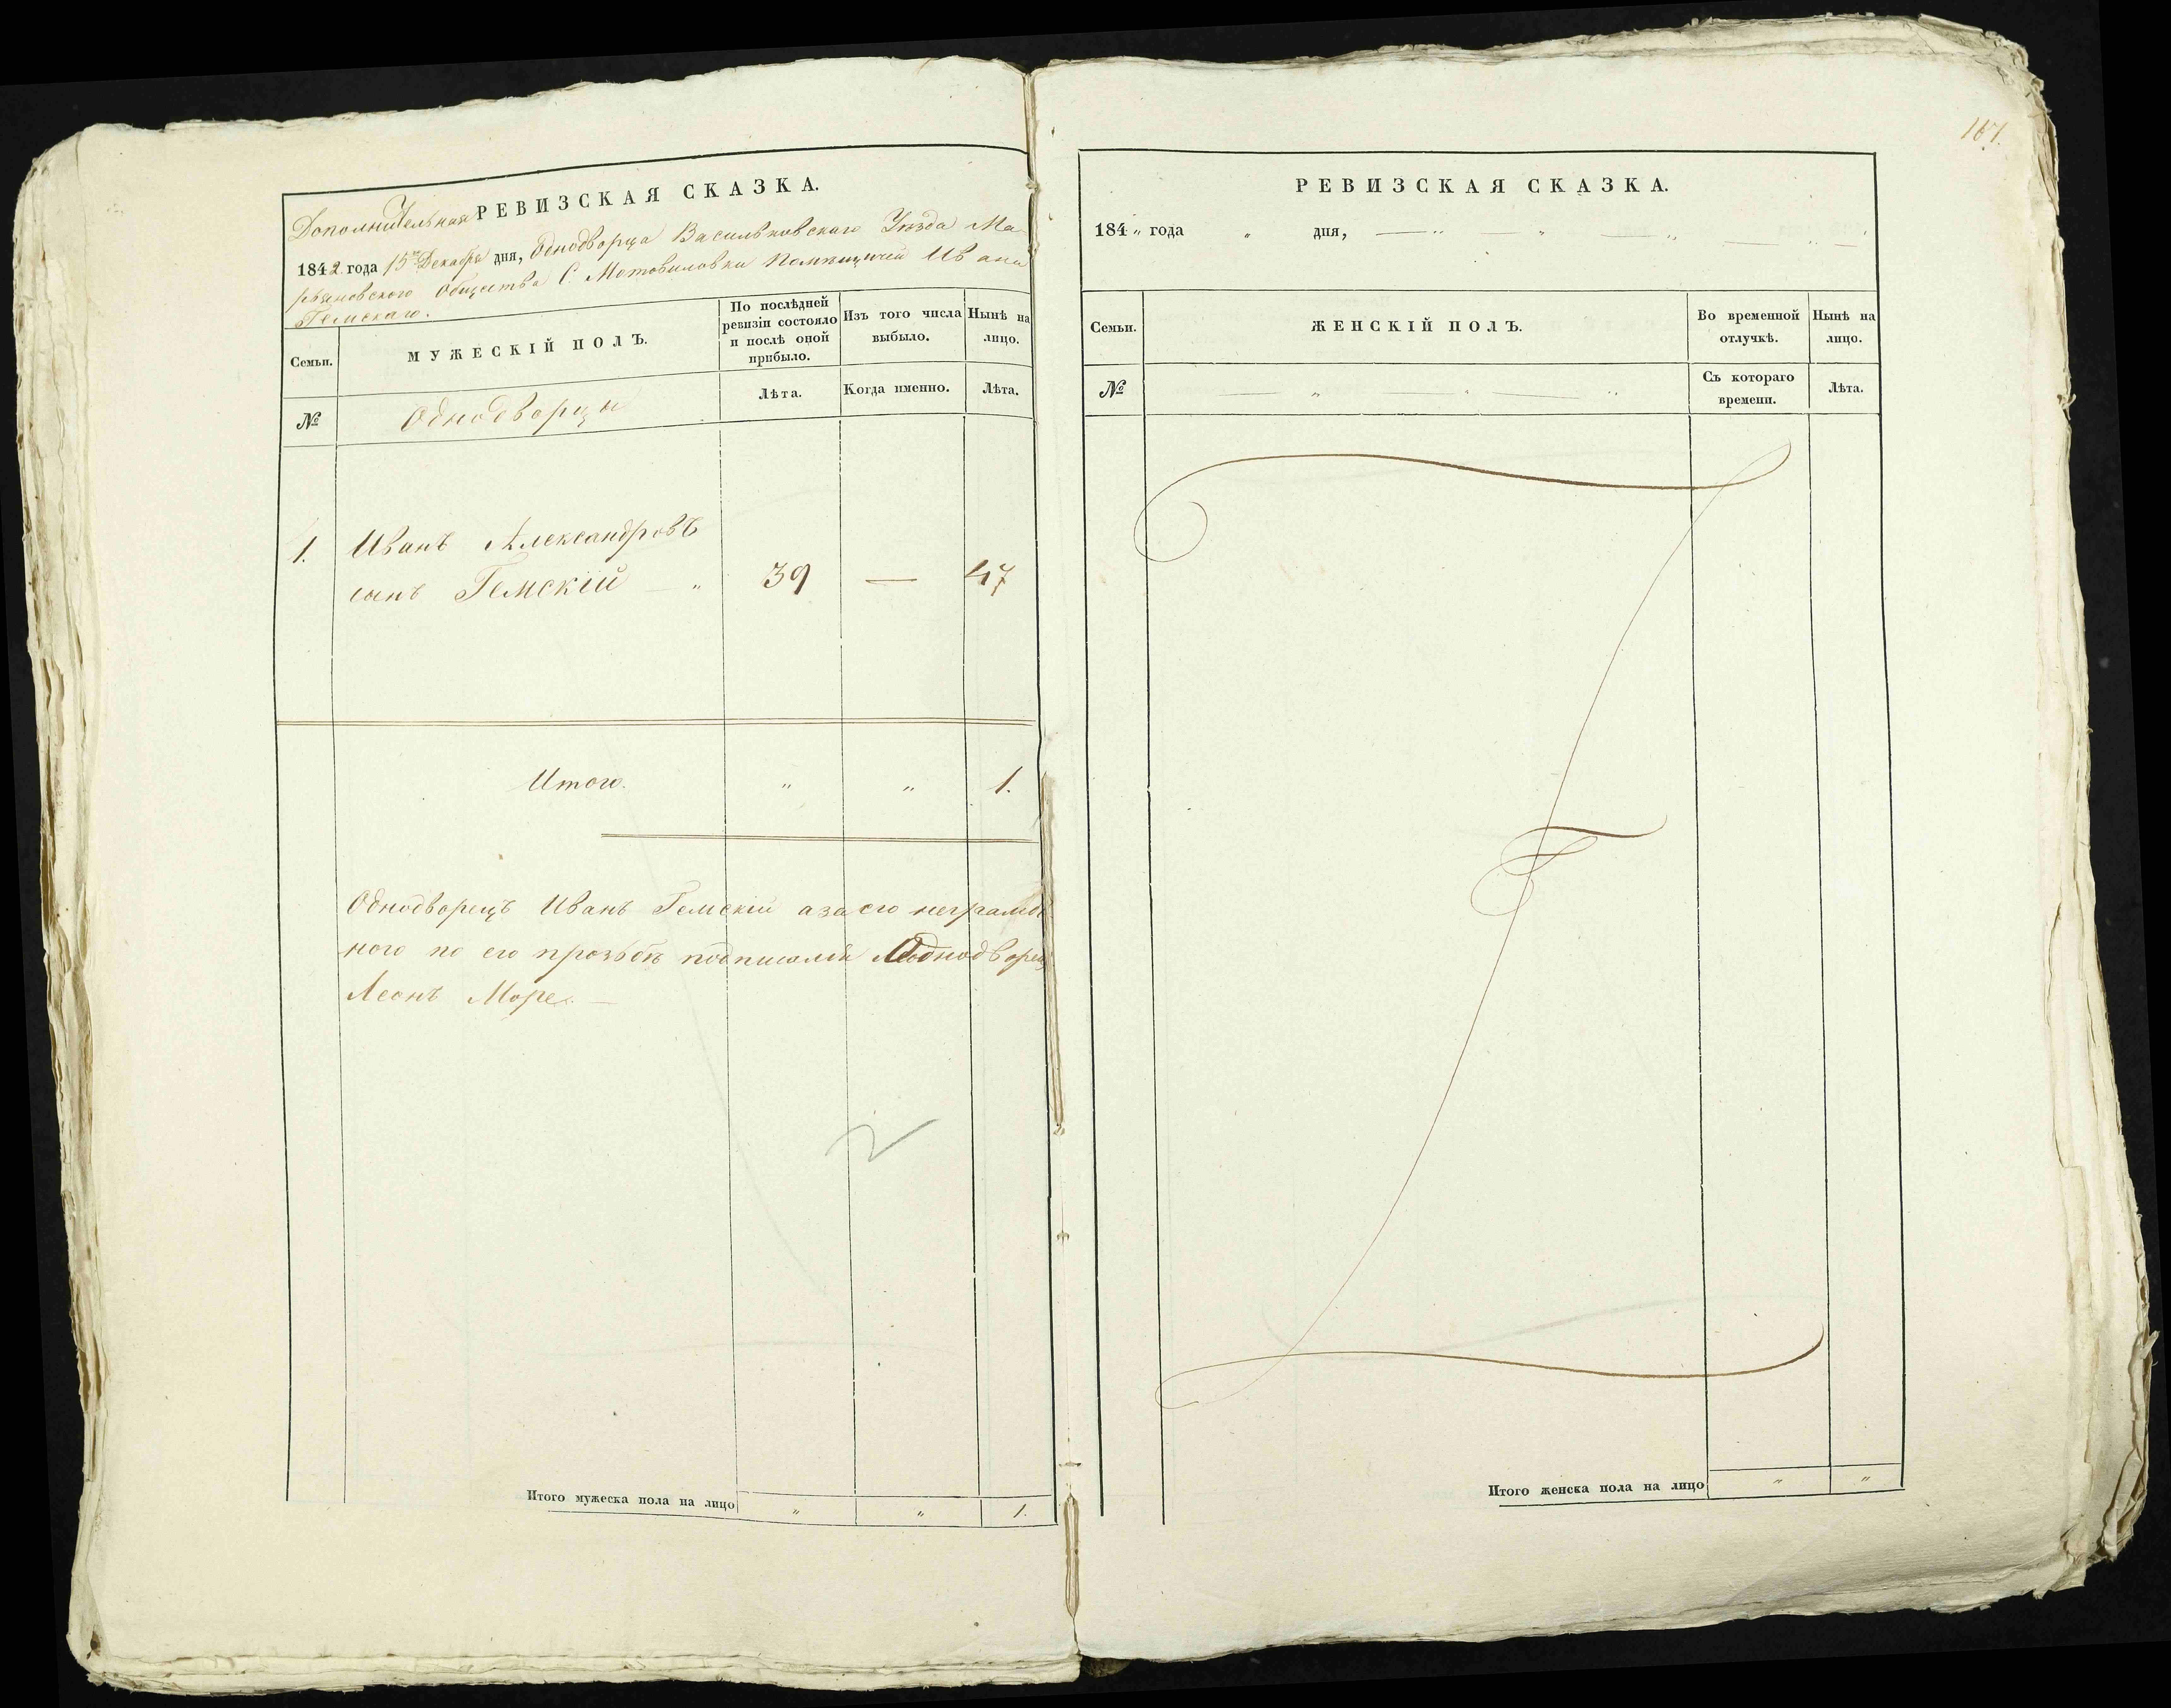 Дополнительная РЕВИЗСКАЯ СКАЗКА.
1842 года 15го Декабря дня, Однодворца Васильковскаго Уезда Ма
рьяновского Общества С. Мотовиловки Ивана
Гемскаго.
Семьи.
МУЖЕСКІЙ ПОЛЪ.
По послѣдней ревизіи состояло и послѣ оной прибыло.
Изъ того числа выбыло.
Нынѣ на лицо.
№
Однодворцы
Лѣта.
Когда именно.
Лѣта.
1. Иванъ Александровъ
сынъ Гемскій — „ 39 — 47
Итого. „ „ 1.
Однодворецъ Иванъ Гемскій а за его неграмот
ного по его прозьбѣ подписался Однодворец
Леонъ Море —
Итого мужеска пола на лицо „ „ 1.
167.
РЕВИЗСКАЯ СКАЗКА.
184 „ года „ дня, — „ — „ — „ — „ —
Семьи.
ЖЕНСКІЙ ПОЛЪ.
Во временной отлучкѣ.
Нынѣ на лицо.
№
— „ — „ — „
Съ котораго времени.
Лѣта.
Итого женска пола на лицо „ „